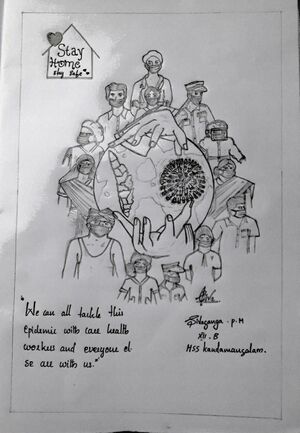 Stay
Home
Stay Safe
"We can all tackle this
Epidemic with care health
workers and everyone el-
se are with us."
P.M
XII. B
HSS Kandamangalam.